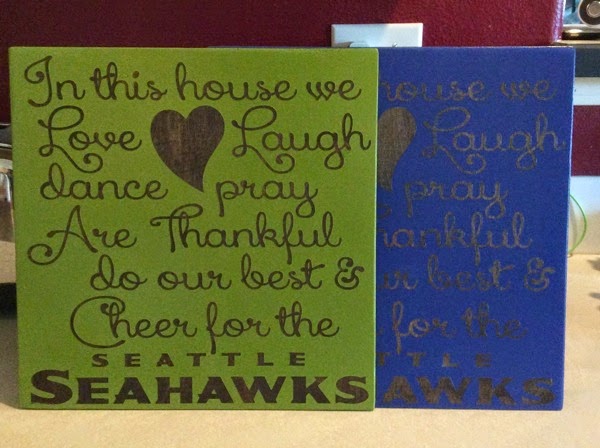 In this house we
Love Laugh
dance pray
Are Thankful
do our best &
Cheer for the
SEATTLE
SEAHAWKS
ouse we
Laugh
pray
ankful
ur best &
for the
TLE
AWKS